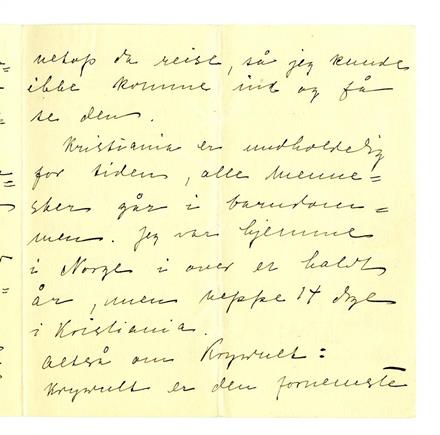 netop da reise, så jeg kunde
ikke komme ind og få
se den.
Kristiania er uudholdelig
for tiden, alle menne=
sker går i barndom=
men. Jeg var hjemme
i Norge i over et halvt
år, men neppe 14 dage
i Kristiania.
Altså om Krywult:
Krywult er den fornemste